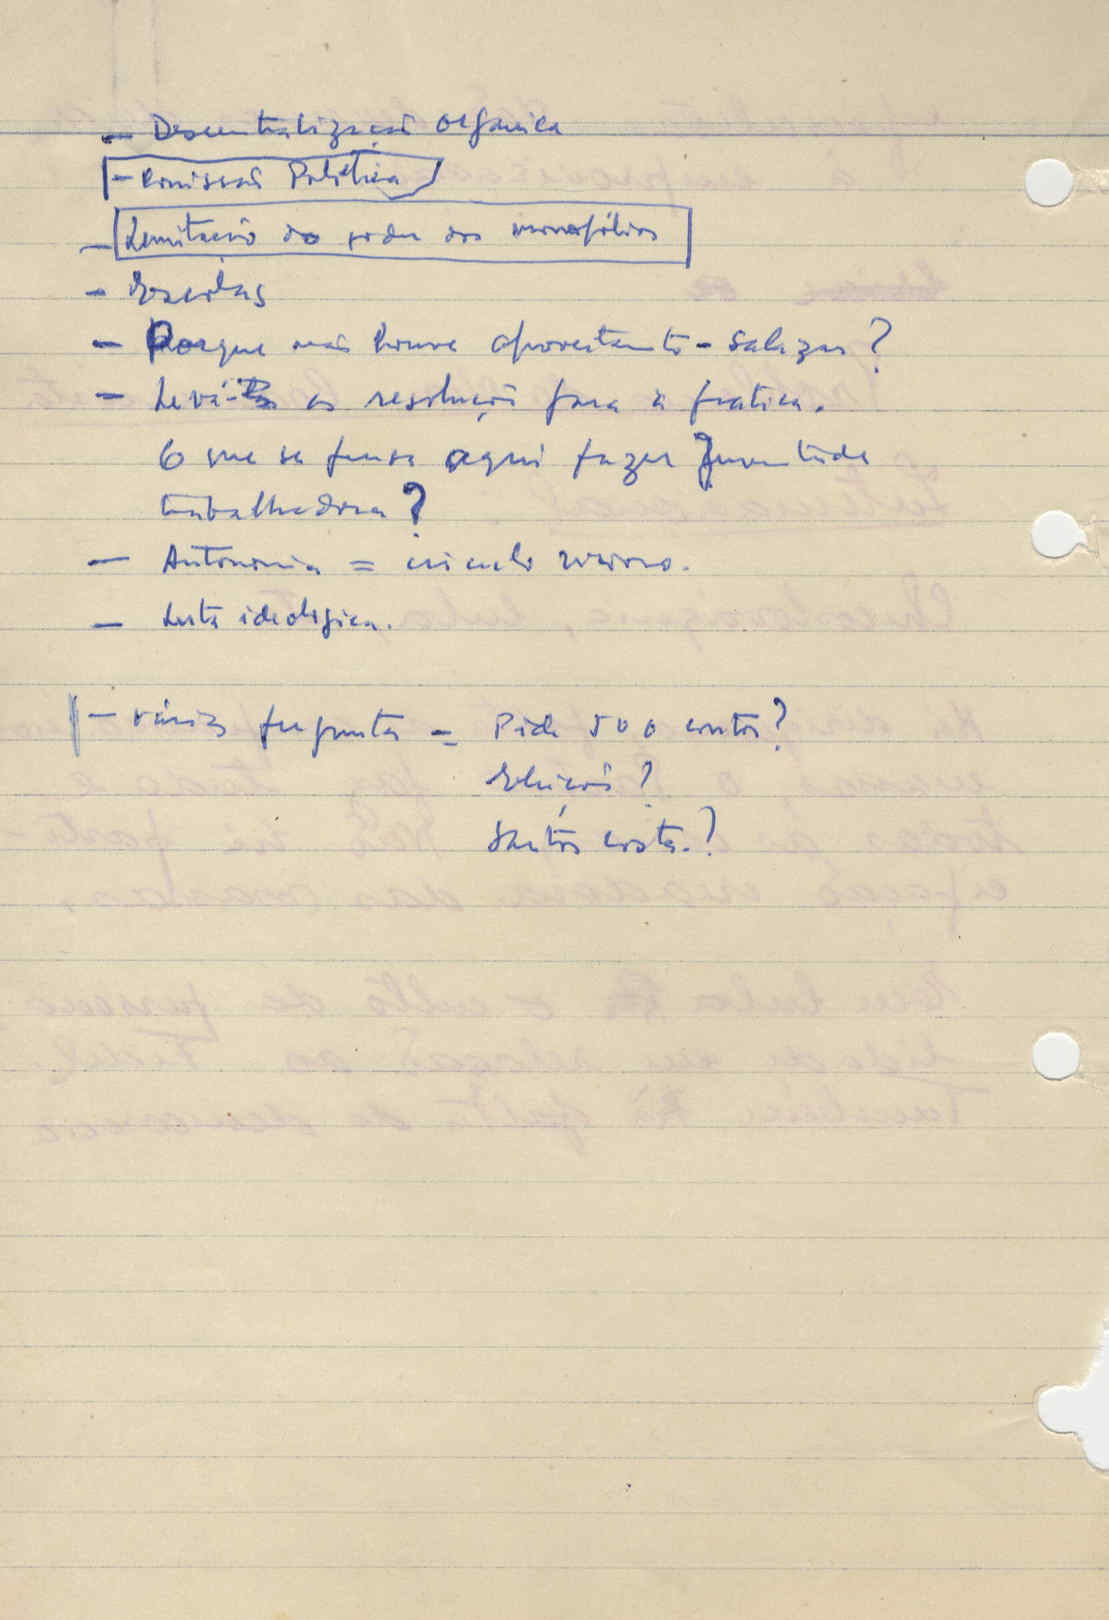 — Descentralização organica
— Comissão Politica
— Limitação do poder dos monopólios
—
— Porque não houve aproveitamento - Salazar?
— Levá- as resolução para a pratica.
O que se pensa aqui fazer Juventude
trabalhadora?
— Autonomia = circulo vicioso.
— Luta ideologica.
— várias preguntas = Pide 500 contos?
Eleições?
Santos Costa.?